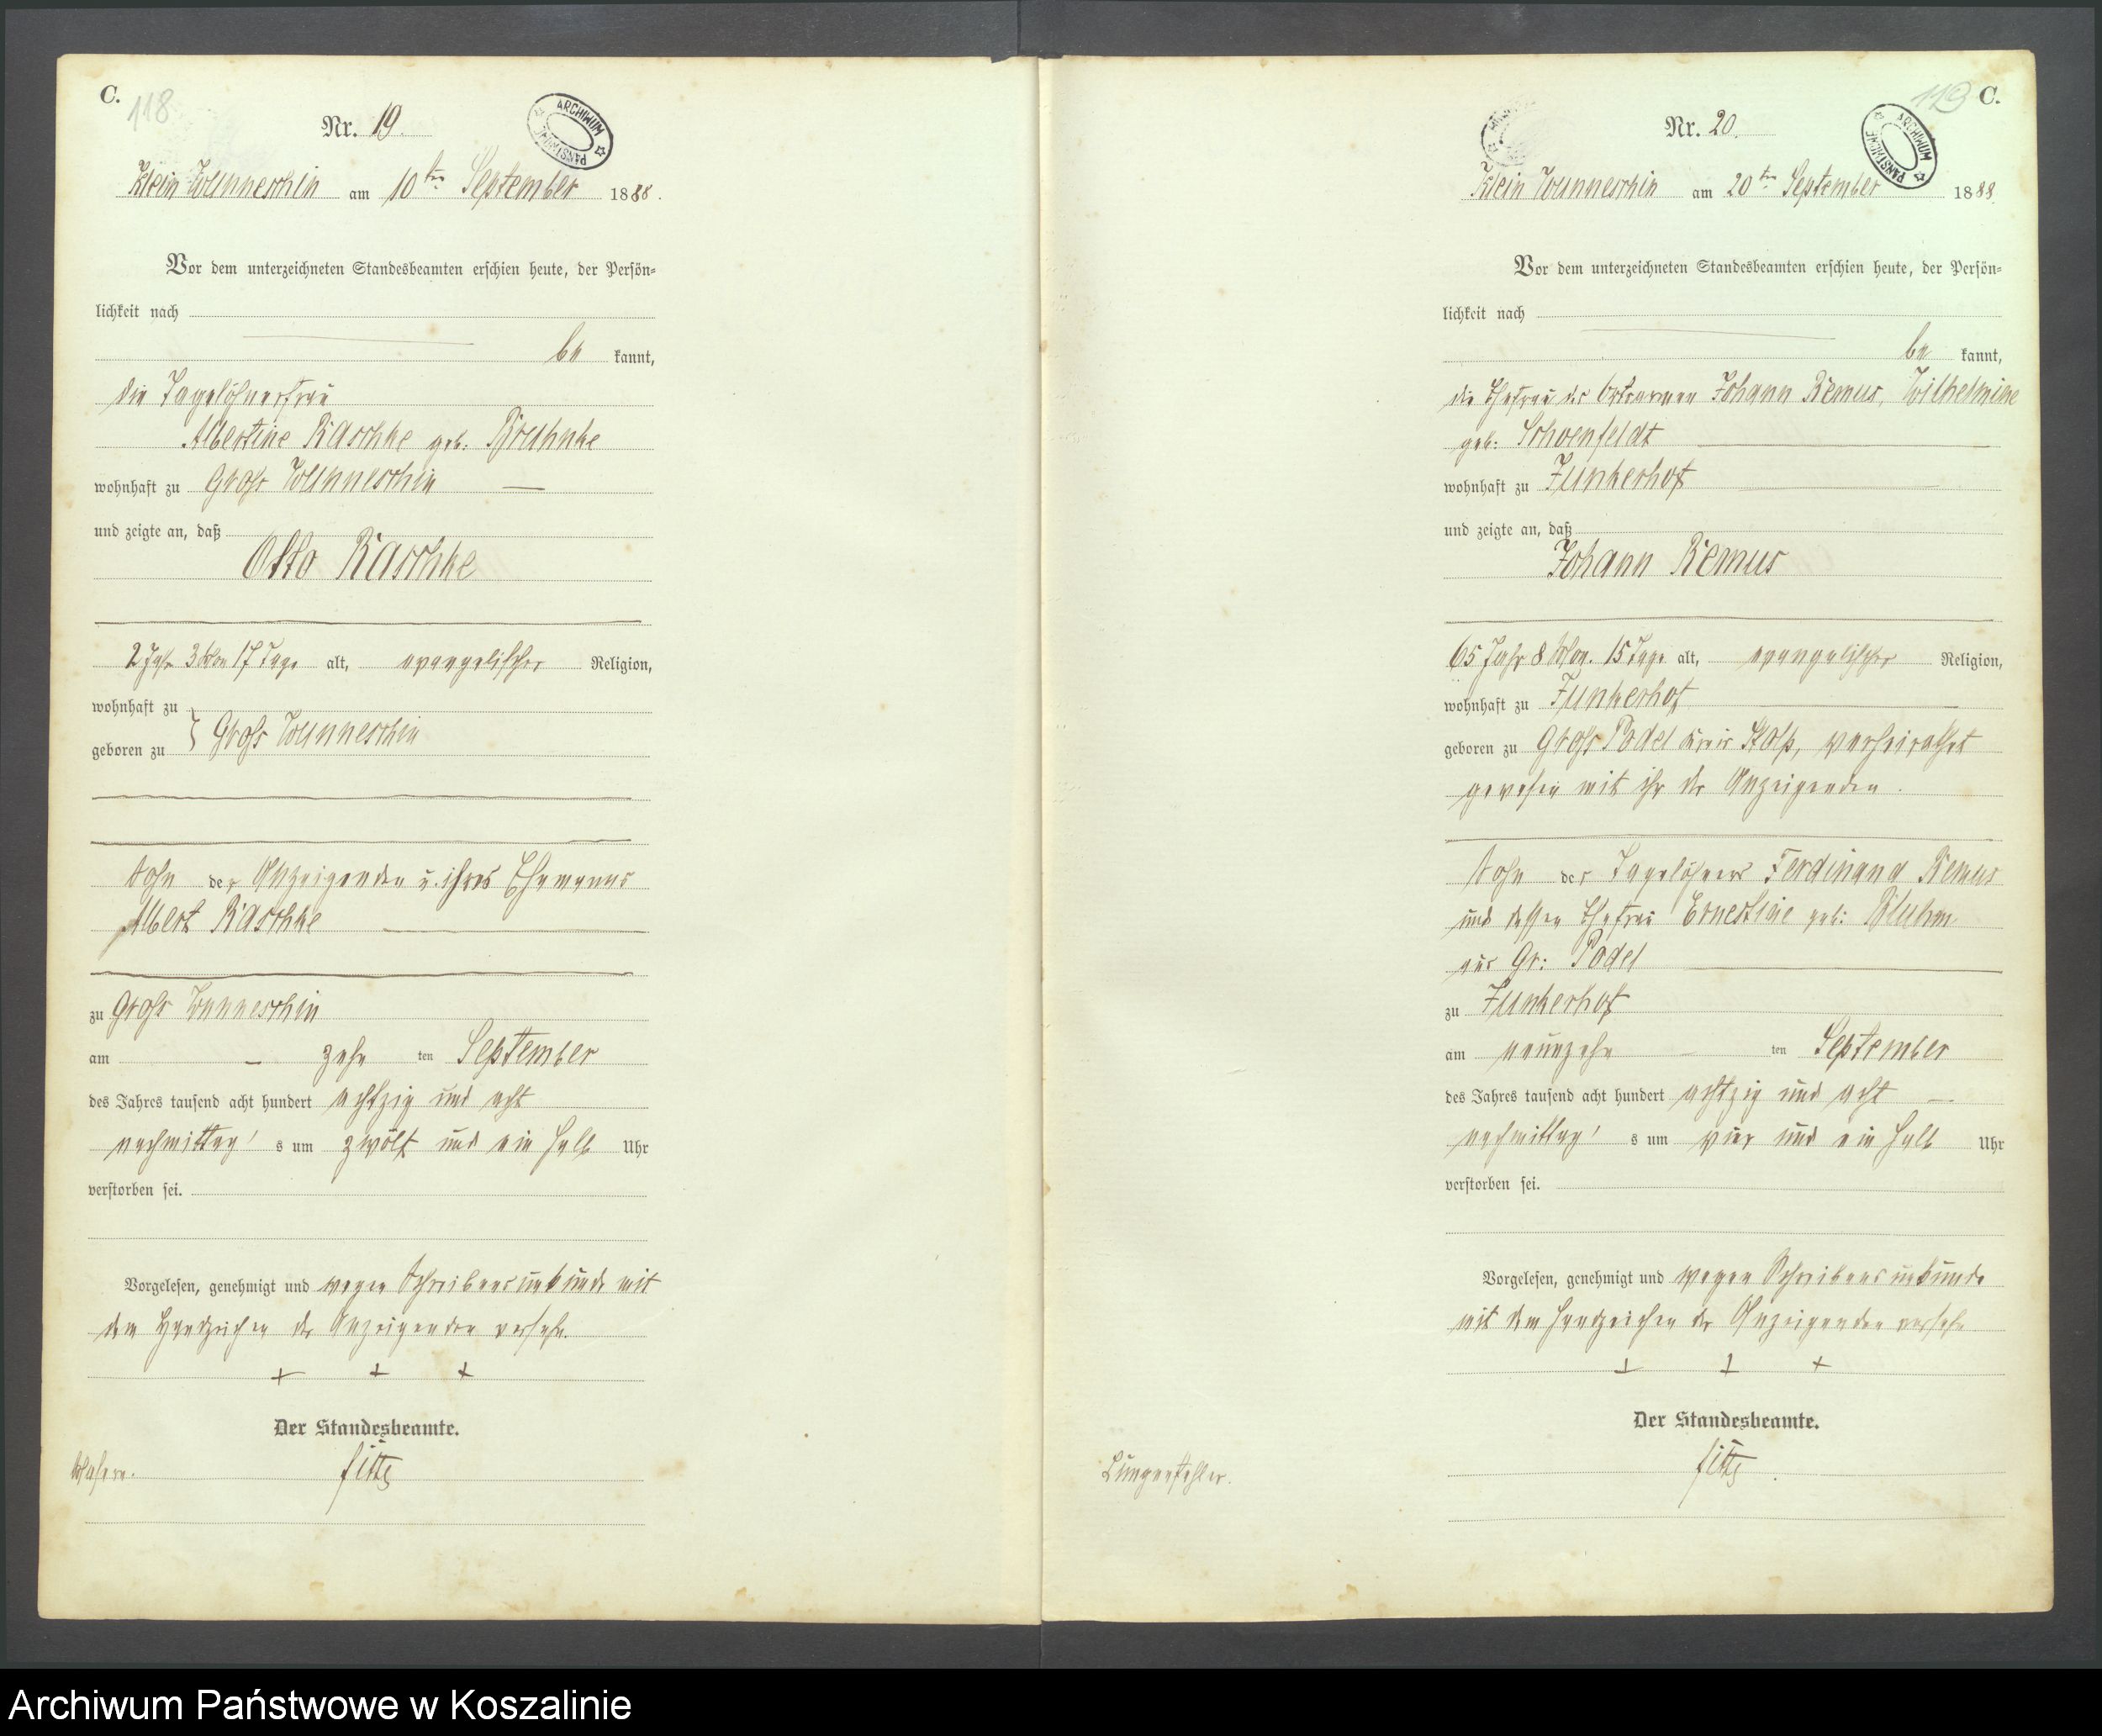 C.
118
Nr. 19.
ARCHIWUM PAŃSTWOWE
Klein Wunneschin am 10ten September 1888.
Vor dem unterzeichneten Standesbeamten erschien heute, der Persön=
lichkeit nach
be kannt,
die Tagelöhnerfrau
Albertine Raschke geb:
wohnhaft zu Groß Wunneschin
und zeigte an, daß
Otto Raschke
2 Jahr 3 Mon 17 Tage alt, evangelischer Religion,
wohnhaft zu
geboren zu } Groß Wunneschin
Sohn der Anzeigenden u. ihres Ehemanns
Albert Raschke
zu Groß Wunneschin
am zehn ten September
des Jahres tausend acht hundert achtzig und acht
nachmittag's um zwölf und ein halb Uhr
verstorben sei.
Vorgelesen, genehmigt und wegen Schreibensunkunde mit
dem Handzeichen der Anzeigenden versehn.
+ + +
Der Standesbeamte.
Masern.
119
C.
Nr. 20.
ARCHIWUM PAŃSTWOWE
Klein Wunneschin am 20ten September 1888
Vor dem unterzeichneten Standesbeamten erschien heute, der Persön=
lichkeit nach
be kannt,
die Ehefrau des Ortsarmen Johann Remus, Wilhelmine
geb: Schoenfeldt
wohnhaft zu Junkerhof
und zeigte an, daß
Johann Remus
65 Jahr 8 Mon. 15 Tage alt, evangelischer Religion,
wohnhaft zu Junkerhof
geboren zu Groß Podel Kreis Stolp, verheirathet
gewesen mit ihr der Anzeigenden.
Sohn des Tagelöhners Ferdinand Remus
und dessen Ehefrau Ernestine geb: Bluhm
aus Gr: Podel
zu Junkerhof
am neunzehn ten September
des Jahres tausend acht hundert achtzig und acht
nachmittag's um vier und ein halb Uhr
verstorben sei.
Vorgelesen, genehmigt und wegen Schreibensunkunde
mit dem Handzeichen der Anzeigenden versehn
+ + +
Der Standesbeamte.
Lungenfehler.
Archiwum Państwowe w Koszalinie